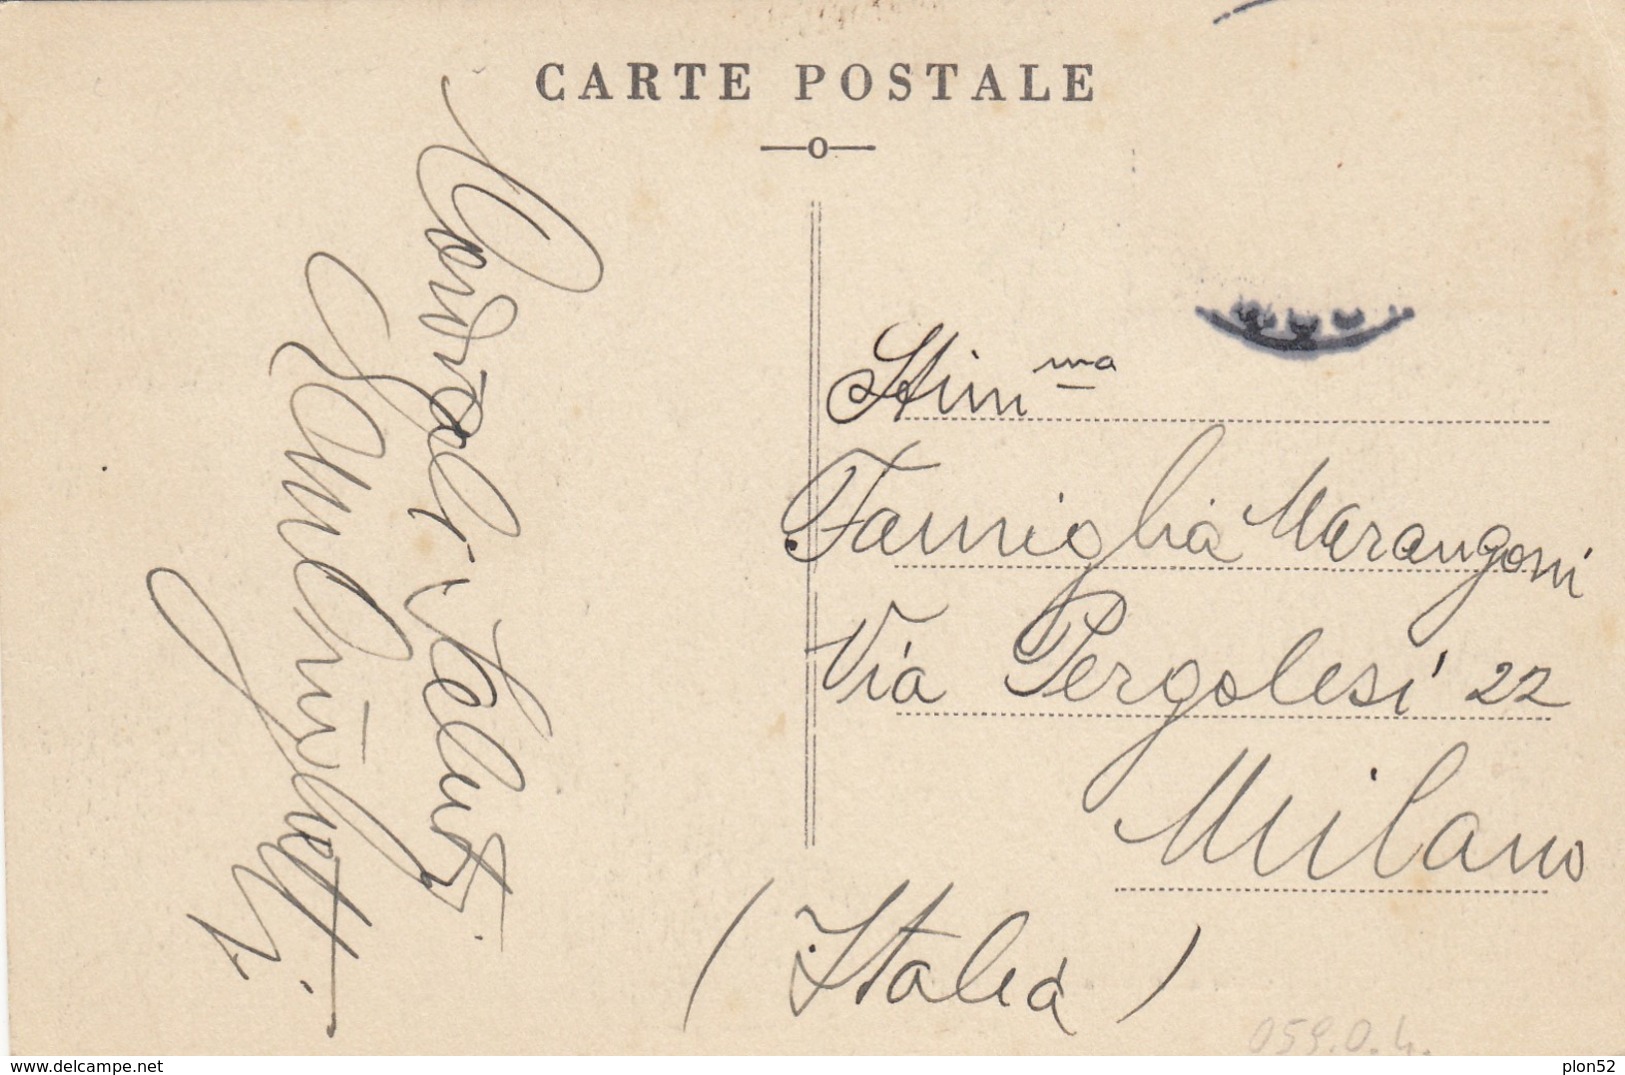 CARTE POSTALE
Cordiali saluti
Stim ma
Famiglia Marangoni
Via Pergolesi 22
Milano
(Italia)
059.0.4.
www.delcampe.net
plon52